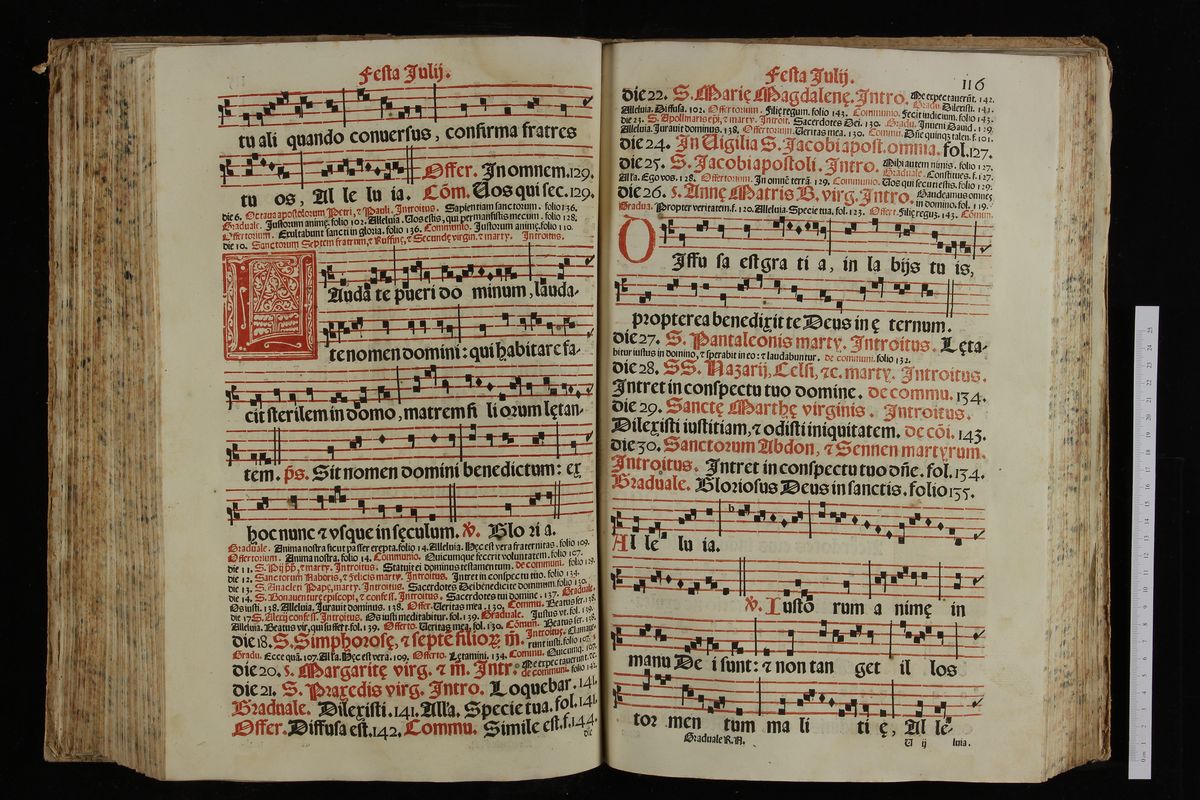 Festa Julij.
tu ali quando conuersus, confirma fratres
tu os, Al le lu ia. Offer. In omnem. 129.
Cõm. Uos qui sec. 129.
die 6. Octaua apostolorum Petri, ⁊ Pauli. Introitus. Sapientiam sanctorum. folio 136.
Graduale. Justorum animę. folio 102. Alleluia. Uos estis, qui permansistis mecum. folio 128.
Offertorium. Exultabunt sancti in gloria. folio 136. Communio. Justorum animę. folio 110.
die 10. Sanctorum Septem fratrum, ⁊ Ruffinę, ⁊ Secundę virgin. ⁊ marty. Introitus.
LAuda te pueri do minum, lauda-
te nomen domini: qui habitare fa-
cit sterilem in domo, matrem fi li orum lętan-
tem. p̃s. Sit nomen domini benedictum: ex
hoc nunc ⁊ vsque in sęculum. ℣. Glo ri a.
Graduale. Anima nostra sicut passer erepta. folio 14. Alleluia. Hęc est vera fraternitas. folio 109.
Offertorium. Anima nostra. folio 14. Communio. Quicumque fecerit voluntatem. folio 107.
die 11. S. Pij pp̃, ⁊ marty. Introitus. Statuit ei dominus testamentum. de communi. folio 129.
die 12. Sanctorum Naboris, ⁊ Felicis marty. Introitus. Intret in conspectu tuo. folio 134.
die 13. S. Anacleti Papę, marty. Introitus. Sacerdotes Dei benedicite dominum. folio 130.
die 14. S. Bonauenturę episcopi, ⁊ confess. Introitus. Sacerdotes tui domine. 137. Graduale.
Os iusti. 138. Alleluia. Jurauit dominus. 138. Offer. Ueritas mea. 130. Commu. Beatus ser. 138.
die 17. S. Alexij confess. Introitus. Os iusti meditabitur. fol. 139. Graduale. Justus vt. fol. 139.
Alleluia. Beatus vir, qui suffert. fol. 139. Offerto. Ueritas mea. fol. 130. Cõmun. Beatus ser. 138.
die 18. S. Simphorosę, ⁊ septẽ filioꝝ m̃. Introitus. Clamaue-
runt iusti. folio 107.
Gradu. Ecce quã. 107. Alľa. Hęc est vera. 109. Offerto. Lętamini. 134. Commu. Quicumq. 107.
die 20. S. Margaritę virg. ⁊ m̃. Intr. Me expectauerunt. ⁊c.
de communi. folio 142.
die 21. S. Praxedis virg. Intro. Loquebar. 141.
Graduale. Dilexisti. 141. Alľa. Specie tua. fol. 141.
Offer. Diffusa est. 142. Commu. Simile est. f. 144.
die
Festa Julij.
116
die 22. S. Marię Magdalenę. Intro. Me expectauerũt. 142.
Gradu. Dilexisti. 141.
Alleluia. Diffusa. 102. Offertorium. Filię regum. folio 143. Communio. Feci iudicium. folio 143.
die 23. S. Apollinaris epĩ, ⁊ marty. Introit. Sacerdotes Dei. 130. Gradu. Inueni Dauid. 129.
Alleluia. Jurauit dominus. 138. Offertorium. Ueritas mea. 130. Commu. Dñe quinq; talen. f. 101.
die 24. In Uigilia S. Jacobi apost. omnia. fol. 127.
die 25. S. Jacobi apostoli. Intro. Mihi autem nimis. folio 127.
Graduale. Constitues. f. 127.
Alľa. Ego vos. 128. Offertorium. In omnẽ terrã. 129. Communio. Uos qui secuti estis. folio 129.
die 26. S. Annę Matris B. virg. Intro. Gaudeamus omnes
in domino. fol. 119.
Gradua. Propter veritatem. f. 120. Alleluia. Specie tua. fol. 123. Offert. Filię regũ. 143. Cõmun.
DIffu sa est gra ti a, in la bijs tu is,
propterea benedixit te Deus in ę ternum.
die 27. S. Pantaleonis marty. Introitus. Lęta-
bitur iustus in domino, ⁊ sperabit in eo: ⁊ laudabuntur. de communi. folio 132.
die 28. SS. Nazarij, Celsi, ⁊c. marty. Introitus.
Intret in conspectu tuo domine. de commu. 134.
die 29. Sanctę Marthę virginis. Introitus.
Dilexisti iustitiam, ⁊ odisti iniquitatem. de cõi. 143.
die 30. Sanctorum Abdon, ⁊ Sennen martyrum.
Introitus. Intret in conspectu tuo dñe. fol. 134.
Graduale. Gloriosus Deus in sanctis. folio 135.
Al le lu ia.
℣. Iusto rum a nimę in
manu De i sunt: ⁊ non tan get il los
tor men tum ma li ti ę, Al le-
Graduale R. N.
U ij
luia.